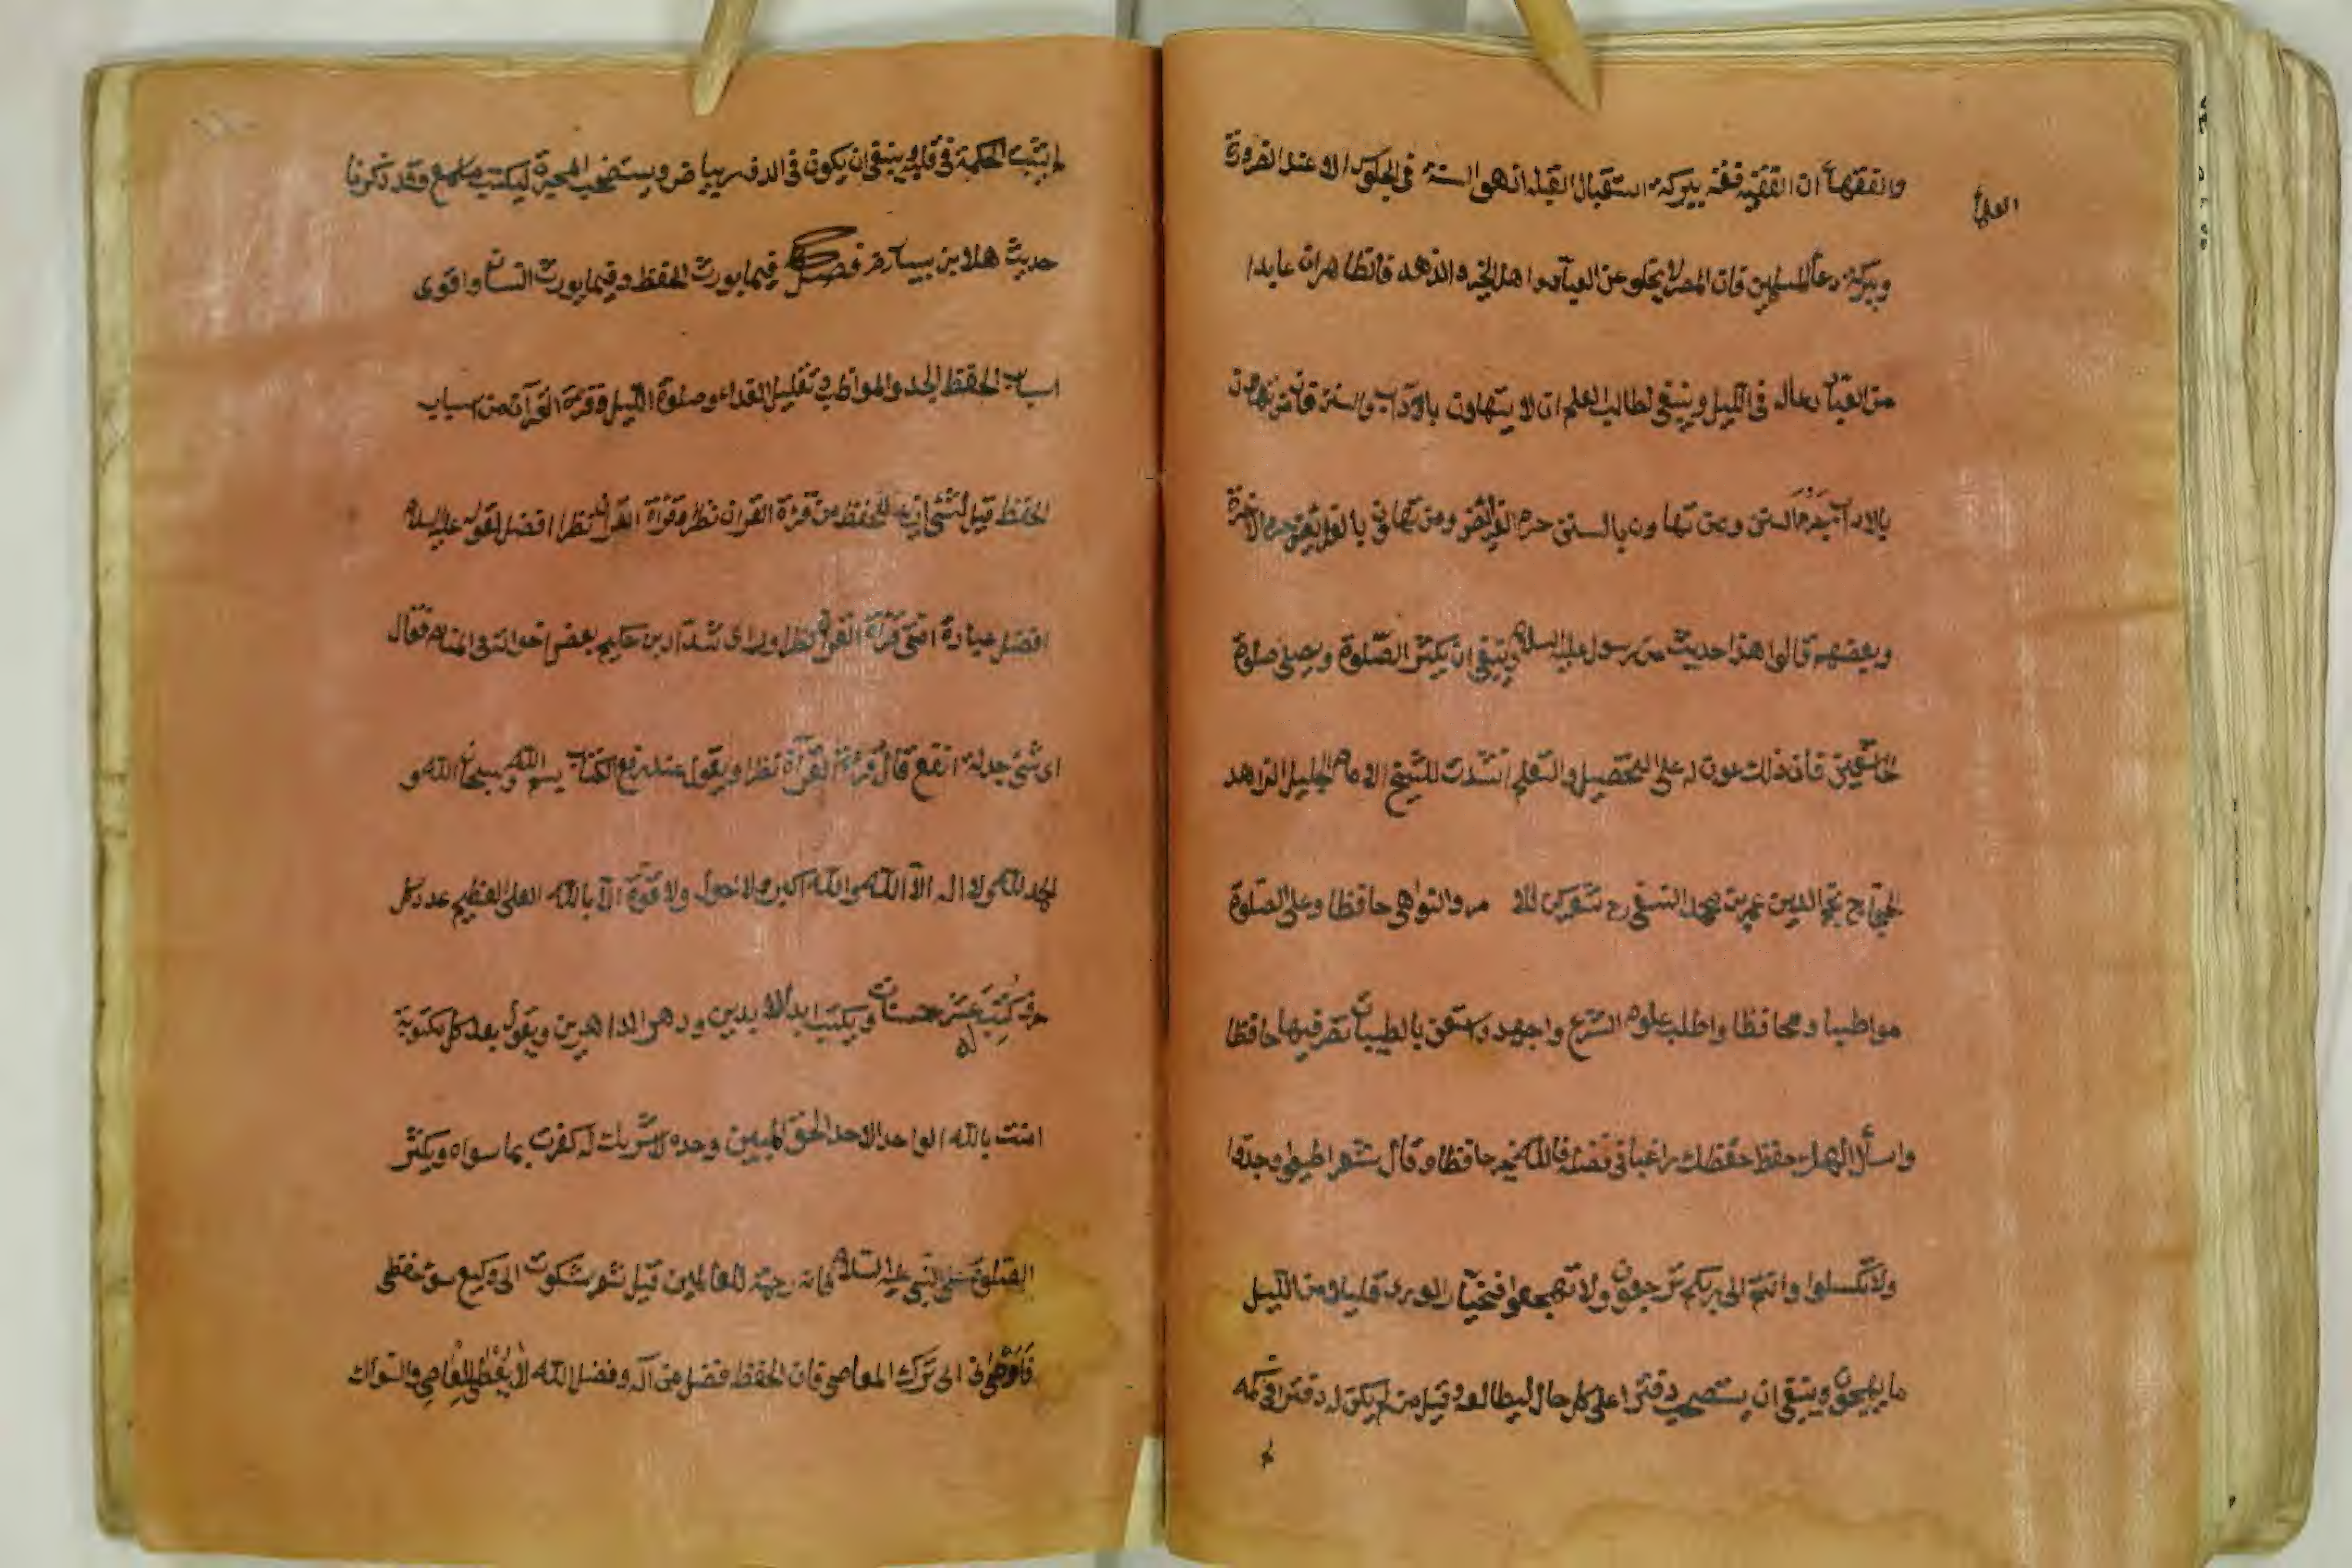 العلماء
والفقهاء ان الفقيه فقه ببركة استقبال القبلة اذ هو السنة فى الجلوس الا عند الضرورة
وببركة دعا المسلمين فان المصر لا يخلو عن العباد واهل الخير والزهد فالظاهر ان عابدا
من العباد دعا له فى الليل وينبغى لطالب العلم ان لا يتهاون بالاداب والسنن فان من تهاون
بالاداب حرم السنن ومن تهاون بالسنن حرم الفرائض ومن تهاون بالفرائض حرم الاخرة
وبعضهم قالوا هذا حديث من رسول عليه السلام وينبغى ان يكثر الصلوة ويصلى صلوة
الخاشعين فان ذلك عون له على التحصيل والتعلم انشدت للشيخ الامام الجليل الزاهد
الحجاج نجم الدين عمر بن محمد النسفى رح شعر كن للا مر والنواهى حافظا وعلى الصلوة
مواظبا ومحافظا واطلب علوم الشرع واجهد واستعن بالطيبات تصر فقيها حافظا
واسأل الهك حفظ حفظك راغبا فى فضله فالله خير حافظا وقال شعر اطيعوا وجدوا
ولا تكسلوا وانتم الى ربكم ترجعون ولا تهجعوا فخيار الورى قليلا من الليل
ما يهجعون وينبغى ان يستصحب دفترا على كل حال ليطالعه وقيل من لم يكن له دفتر فى كمه
لم
لم يثبت الحكمة فى قلبه وينبغى ان يكون فى الدفتر بياض ويستصحب المحبرة ليكتب ما يسمع وقد ذكرنا
حديث هلال بن يسار فصل فيما يورث الحفظ وفيما يورث النسيان واقوى
اسباب الحفظ الجد والمواظبة وتقليل الغداء وصلوة الليل وقرءة القرآن من اسباب
الحفظ قيل ليس شئ ازيد للحفظ من قرءة القران نظرا وقراة القران نظرا افضل لقوله عليه السلام
افضل عبادة امتى قراة القران نظرا وراى شداد بن حكيم بعض اخوانه فى المنام فقال
اى شئ وجدته انفع قال قرءة القرآن نظرا ويقول عند رفع الكتاب بسم الله وسبحان الله و
الحمد لله ولا اله الا الله والله اكبر ولا حول ولا قوة الا بالله العلى العظيم عدد كل
حرف كتب عشر حسنات ويكتب ابد الابدين ودهر الداهرين ويقول بعد كل مكتوبة
امنت بالله الواحد الاحد الحق المبين وحده لا شريك له كفرت بما سواه ويكثر
الصلوة على النبى عليه السلام فانه رحمة للعالمين قيل شعر شكوت الى وكيع سوء حفظى
فاوصانى الى ترك المعاصى فان الحفظ فضل من اله وفضل الله لا يعطى للعاصى والسواك